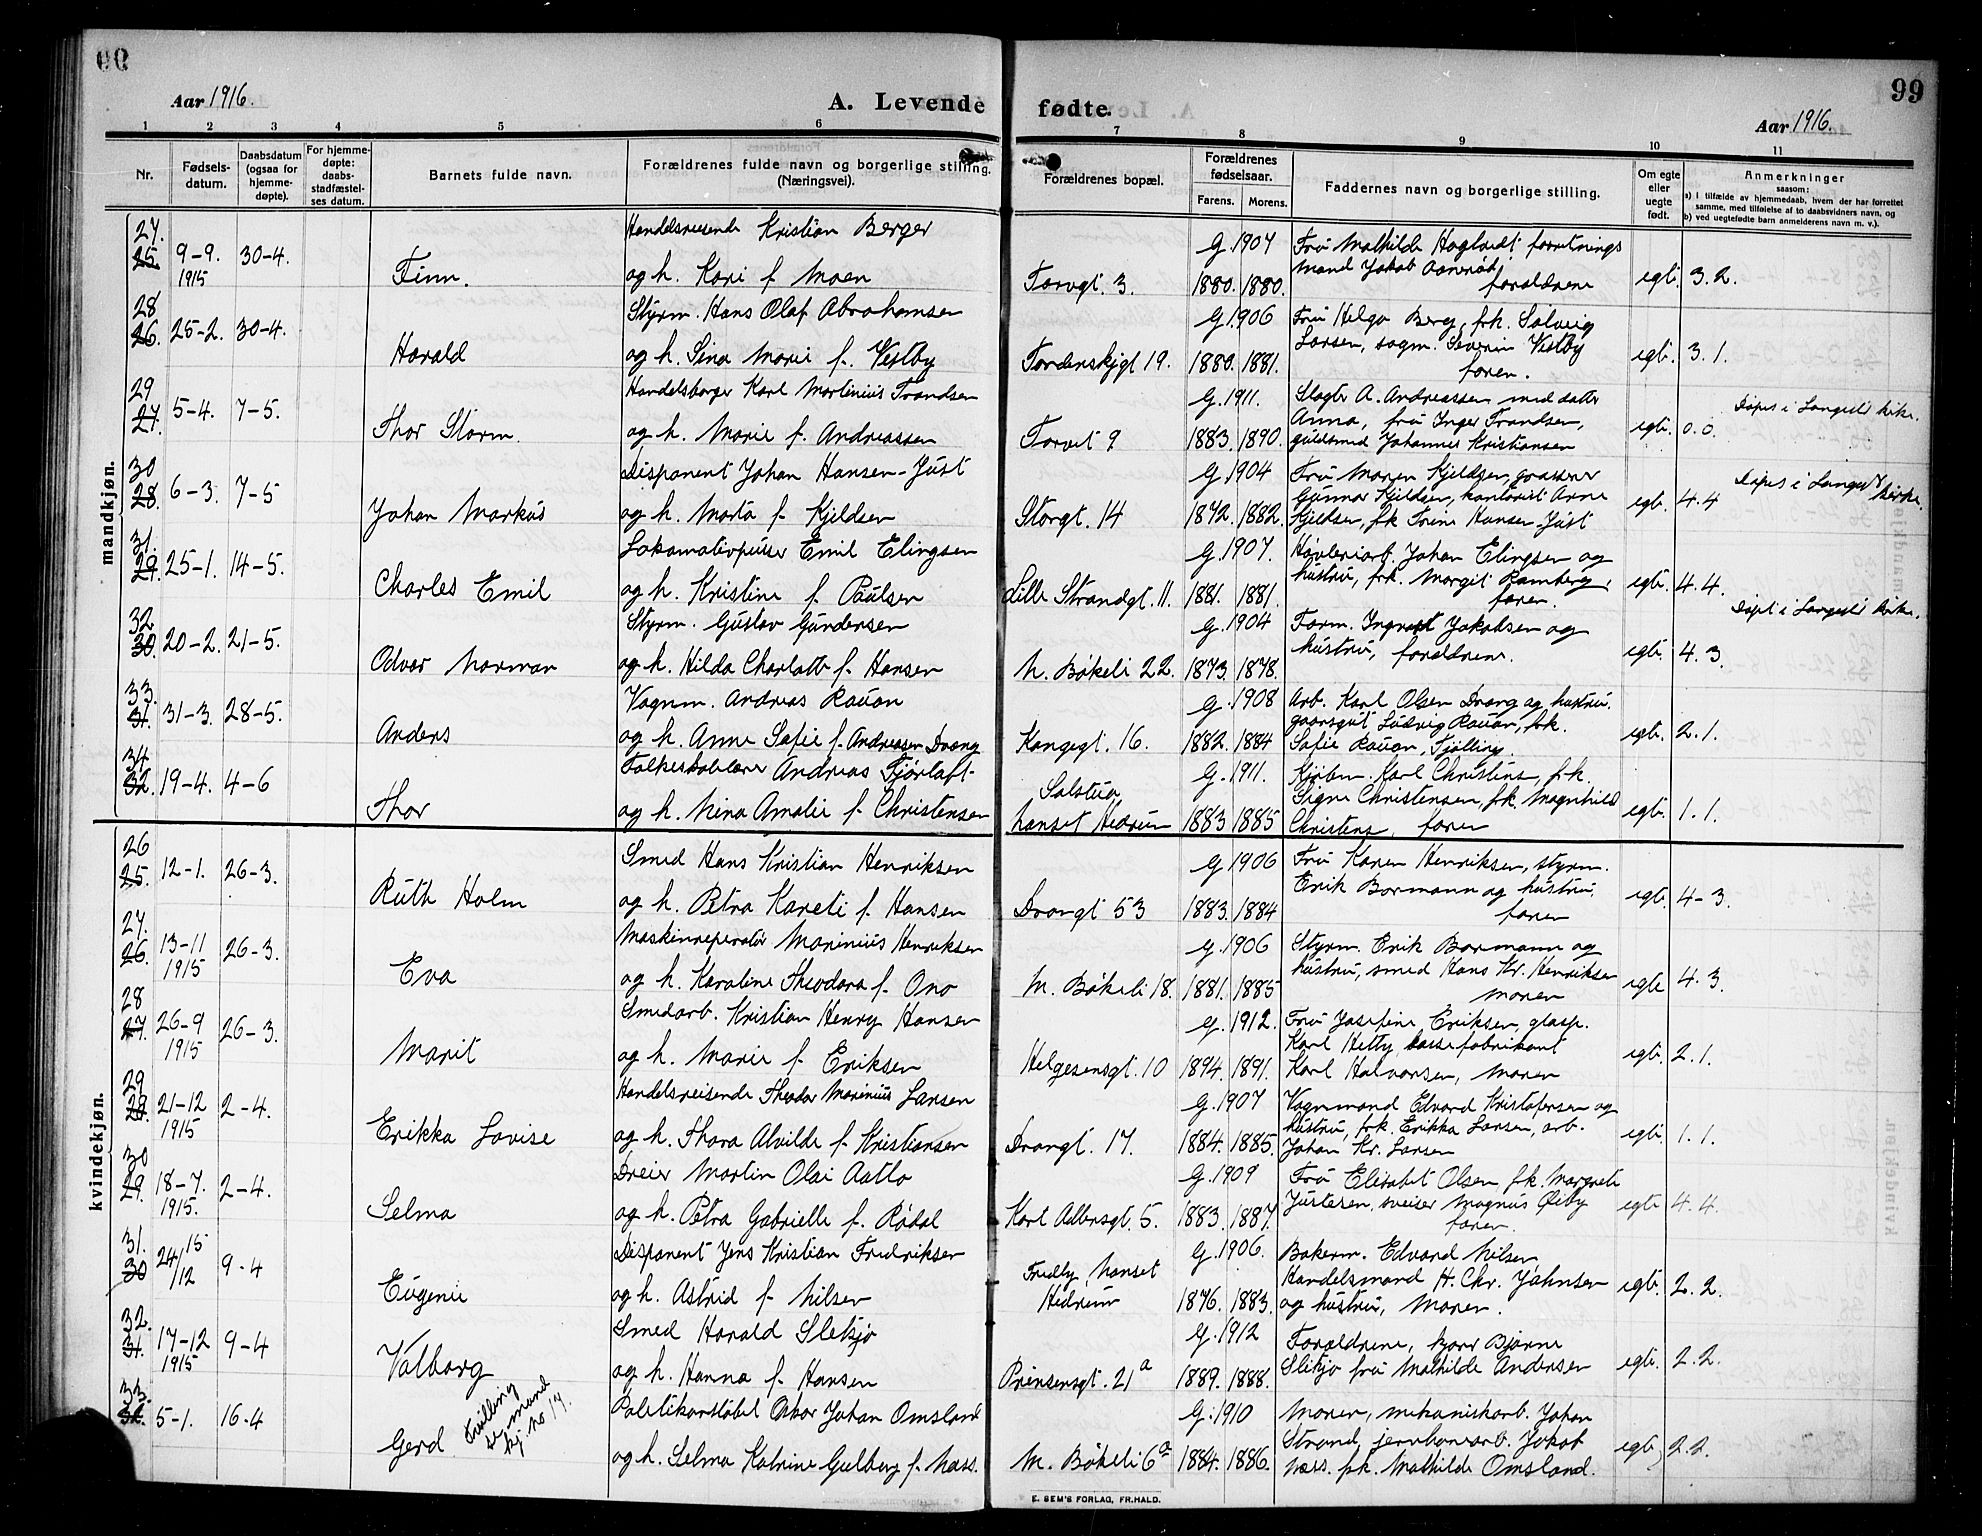 99
Aar 1916.
A. Levende fødte.
Aar 1916.
1 2 3 4 5 6 7 8 9 10 11
Nr.
Fødsels-datum.
Daabsdatum (ogsaa for hjemme-døpte).
For hjemme-døpte: daabs-stadfæstel-ses datum.
Barnets fulde navn.
Forældrenes fulde navn og borgerlige stilling. (Næringsvei).
Forældrenes bopæl.
Forældrenes fødselsaar.
Farens. Morens.
Faddernes navn og borgerlige stilling.
Om egte eller uegte født.
Anmerkninger
saasom:
a) i tilfælde av hjemmedaab, hvem der har forrettet samme, med tilføielse af to daabsvidners navn, og
b) ved uegtefødte barn anmelderens navn m. v.).
mandkjøn.
27. 25. 9-9. 1915 30-4. Finn.
Handelsreisende Kristian Berger
og h. Kari f. Moen
Torvgt. 3. G. 1907 1880. 1880.
Fru Mathilde Hogtvedt forretnings
mand Jakob Aanerød
forældrene
egte. 3.2.
28 26. 25-2. 30-4. Harald
Styrm. Hans Olaf Abrahamsen
og h. Sina Marie f. Vestby
Tordenskjgt 19. G. 1906 1880. 1881.
Fru Helga Berg, frk. Solveig
Larsen, sagm. Severin Vestby
faren.
egte. 3.1.
29 27. 5-4. 7-5. Thor Storm.
Handelsborger Karl Martinius Frandsen
og h. Marie f. Andreassen
Torvet 9 G. 1911. 1883. 1890.
Slagter A. Andreassen med datter
Anna, fru Inger Frandsen,
guldsmed Johannes Kristiansen
egte. 0.0. Døpt i Langestr kirke.
30 28. 6-3. 7-5 Johan Markus
Disponent Johan Hansen-Just
og h. Marta f. Kjeldsen
Storgt. 14 G. 1904 1872. 1882.
Fru Maren Kjeldsen, grosserer
Gunnar Kjeldsen, kontorist Arne
Kjeldsen, frk Trine Hansen-Just
egte. 4.4 Døpt i Langestr kirke.
31. 29. 25-1. 14-5. Charles Emil
Lokomotivpusser Emil Elingsen
og h. Kristine f. Paulsen
Lille Strandgt. 11. G. 1907. 1881. 1881.
Høvleriarb. Johan Elingsen og
hustru, frk. Margit Ramberg,
faren.
egte. 4.4.
32 30. 20-2. 21-5. Odvar Norman
Styrm. Gustav Gundersen
og h. Hilda Charlotte f. Hansen
N. Bøkeli 22. G. 1904 1873. 1878.
Form. Ingvart Jakobsen og
hustru, forældrene.
egte. 4.3. Døpt i Langestr kirke.
33. 31. 31-3. 28-5. Anders
Vognm. Andreas Rauan
og h. Anne Sofie f. Andreasen Drang
Kongegt. 16. G. 1908 1882. 1884
Arb. Karl Olsen Drang og hustru.
gaargut Ludvig Rauan, frk.
Sofie Rauan, Tjølling.
egte. 2.1.
34 32. 19-4. 4-6 Thor
Folkeskolelærer Andreas Fjørtoft
og h. Nina Amalie f. Christensen
Solstua
Nanset Hedrum G. 1911. 1883 1885
Kjøbm. Karl Christens, frk.
Signe Christensen, frk. Magnhild
Christens, faren
egte. 1.1.
kvindekjøn.
26 25. 12-1. 26-3. Ruth Holm
Smed Hans Kristian Henriksen
og h. Petra Kareti f. Hansen
Drangt 53 G. 1906 1883. 1884
Fru Karen Henriksen, styrm.
Erik Bormann og hustru.
faren
egte. 4-3.
27. 26. 13-11 1915 26-3. Eva
Maskinreperatør Marinius Henriksen
og h. Karoline Theodora f. Ono
M. Bøkeli 18. G. 1906 1881. 1885
Styrm. Erik Bormann og
hustru, smed Hans Kr. Henriksen
moren
egte 4.3.
28 27. 26-9 1915 26-3. Marit
Smedarb. Kristian Henry Hansen
og h. Marie f. Eriksen
Helgesensgt. 10 G. 1912. 1894. 1891.
Fru Josefine Eriksen, glasp.
Karl Hetty, fabrikant
Karl Halvorsen, moren
egte. 2.1.
29 28. 21-12 1915 2-4. Erikka Lovise
Handelsreisende Theodor Marinius Larsen
og h. Thora Alvilde f. Kristiansen
Drangt. 17. G. 1907 1884. 1885.
Vognmand Edvard Kristofersen og
hustru, frk. Erikka Larsen, arb.
Johan Kr. Larsen
egte. 1.1.
30 29. 18-7. 1915. 2-4. Selma
Dreier Martin Olai Aatto
og h. Petra Gabrielle f. Rødal
Karl Adlersgt. 5. G. 1909 1883. 1887.
Fru Elisabet Olsen frk. Margrete
Justesen, sveiser Magnus Øiby
faren.
egte 4.4.
31. 30 24/12 15 9-4 Eugenie
Disponent Jens Kristian Fredriksen
og h. Astrid f. Nilsen
Fredly, Nanset
Hedrum G. 1906. 1876. 1883.
Bakerm. Edvard Nilsen
Handelsmand H. Chr. Jahnsen
og hustru, moren.
egte. 2.2.
32. 31. 17-12 1915 9-4 Valborg
Smed Harald Slekjø
og h. Hanna f. Hansen
Prinsensgt. 21a G. 1912 1889. 1888.
Forældrene, Bjarne
Slekjø fru Mathilde Andersen
egte. 2.2.
33. 32. 5-1. 16-4 Gerd Tvilling se mand kj. No 17.
Politikonstabel Oskar Johan Omsland
og h. Selma Katrine Gulborg f. Næss.
M. Bøkeli 6a G. 1910 1884. 1886.
Moren, mekaniskarb. Johan
Strand, jernbanearb. Jakob
Næss. frk. Mathilde Omsland.
egte 2.2.
E. SEM'S FORLAG, FR.HALD.